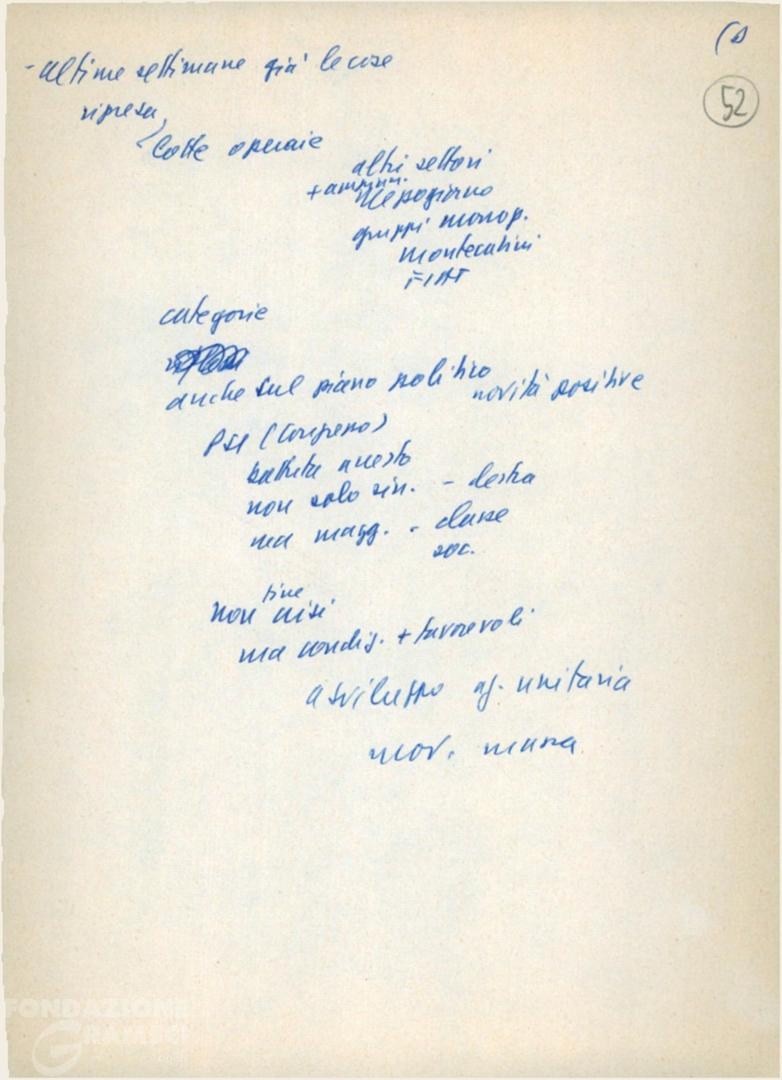 52
- Ultime settimane già le cose
ripresa
lotte operaie
altri settori
+ ammin.
Mezzogiorno
gruppi monop.
Montecatini
FIAT
categorie
anche sul piano politico
novità positive
PSI (Congresso)
battuta
non solo sin. - destra
ma magg. - classe
soc.
fine
non crisi
ma condiz. + favorevoli
a sviluppo az. unitaria
mov. massa
FONDAZIONE
GRAMSCI